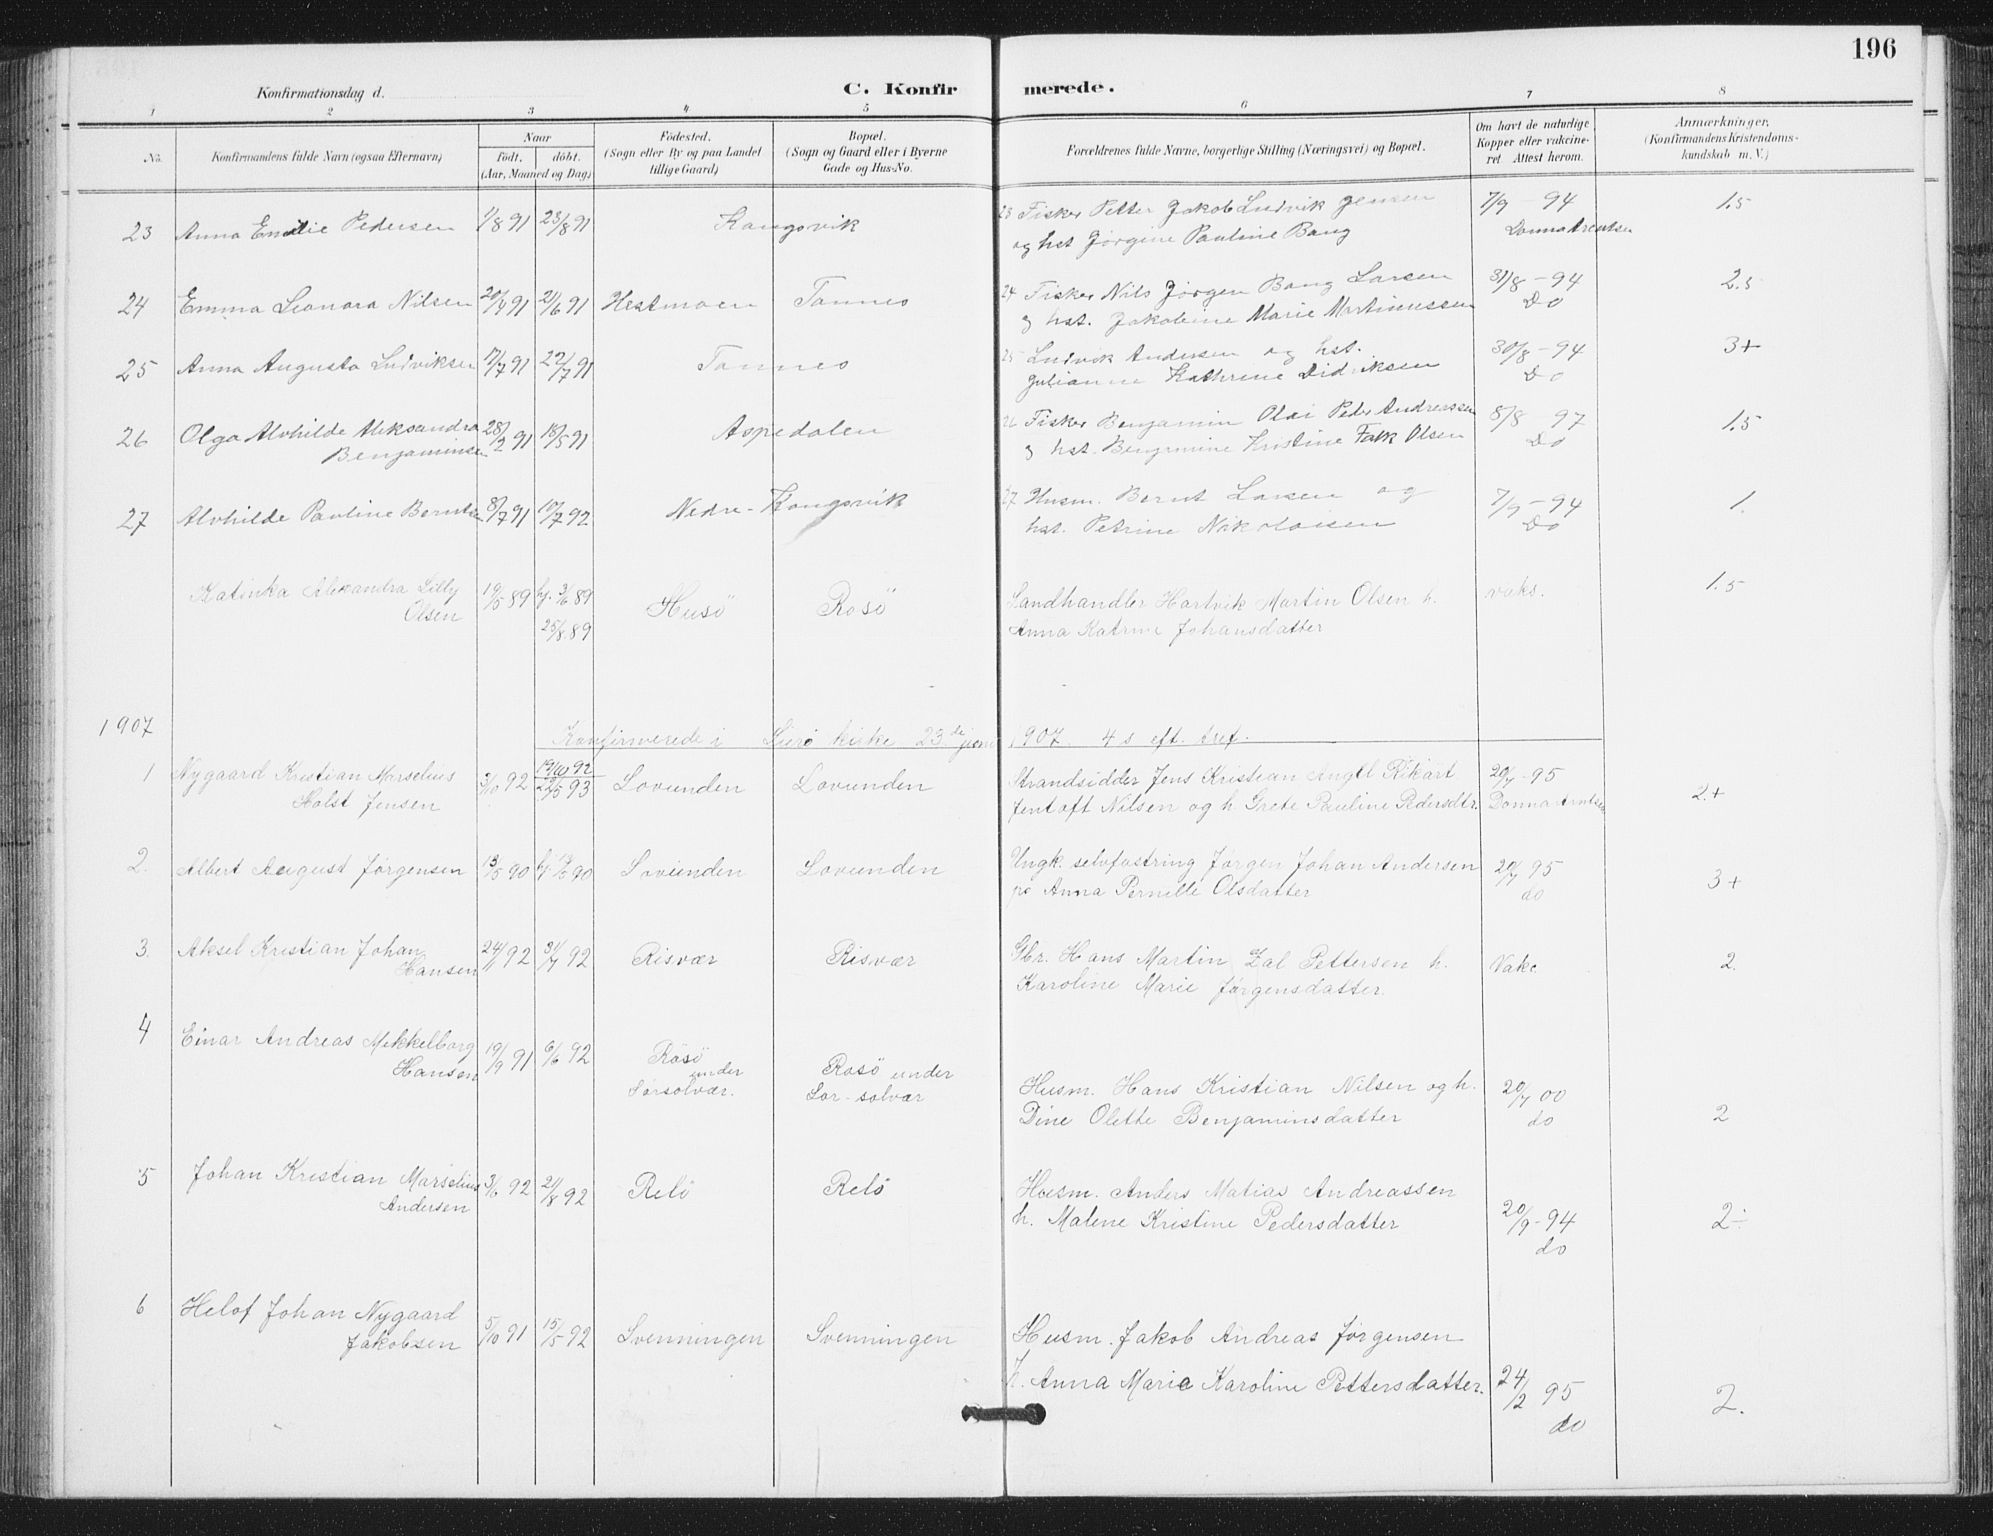 196
Konfirmationsdag d. C. Konfirmerede.
1 2 3 4 5 6 7 8
No. Konfirmandens fulde Navn (ogsaa Efternavn)
Naar
født. døbt.
(Aar, Maaned og Dag)
Fødested.
(Sogn eller By og paa Landet
tillige Gaard)
Bopæl.
(Sogn og Gaard eller i Byerne
Gade og Hus-No.
Forældrenes fulde Navne, borgerlige Stilling (Næringsvei) og Bopæl.
Om havt de naturlige
Kopper eller vakcine-
ret Attest herom.
Anmærkninger,
(Konfirmandens Kristendoms-
kundskab m. V.)
23 Anna Emilie Pedersen 1/8 91 23/8 91 Kongsvik 23 Fisker Petter Jakob Ludvik Jensen 7/9 - 94 1.5
og hst Jørgine Pauline Bang Donna Arentsen
24 Emma Leonora Nilsen 20/4 91 21/6 91 Hestmoen Tonnes 24 Fisker Nils Jørgen Bang Larsen 31/8 - 94 2.5
og hst. Jakobine Marie Martinussen Do
25 Anna Augusta Ludviksen 17/7 91 22/7 91 Tonnes 25 Ludvik Andersen og hst. 30/8 - 94 3+
Julianne Kathrine Didriksen Do
26 Olga Alvhilde Aleksandra 28/2 91 18/5 91 Aspedalen 26 Fisker Benjamin Olai Peder Andreassen 8/8 97 1.5
Benjaminsen og hst. Benjamine Kristine Falk Olsen Do
27 Alvhilde Pauline Berntsen 8/7 91 10/7 92 Nedre-Kongsvik 27 Husm. Bernt Larsen og 7/9 - 94 1.
hst. Petrine Nikolaisen Do
Katinka Alexandra Lilly 19/5 89 hj. 3/6 89 Husö Rosö Landhandler Hartvik Martin Olsen h. vaks. 1.5
Olsen 25/8 89 Anna Katrine Johansdatter
1907
Konfirmerede i Lurö kirke 23de juni 1907. 4 s eft. tref.
1 Nygaard Kristian Marselius 3/10 92 19/10 92 Lovunden Lovunden Strandsidder Jens Kristian Angel Rikart 20/7 - 95 2.+
Holst Jensen 22/5 93 Jentoft Nilsen og h. Grete Pauline Pedersdtr. Donna Arntsen
2. Albert August Jørgensen 13/5 90 Lovunden Lovunden Ungk. selvfostring Jørgen Johan Andersen 20/7 95 3+
pø Anna Pernille Olsdatter do
3. Aksel Kristian Johan 24/1 92 31/7 92 Risvær Risvær Gbr. Hans Martin Zal Pettersen h. Vakc 2.
Hansen Karoline Marie Jørgensdatter.
4 Einar Andreas Mekkelborg 19/9 91 6/6 92 Rösö under Sörsolvær. Rosö under Sor-solvær
Hansen Husm. Hans Kristian Nilsen og h. 20/7 00 2
Dine Olette Benjaminsdatter do
5 Johan Kristian Marselius 3/6 92 21/8 92 Relö Relö Husm. Anders Matias Andreassen
Andersen h. Malene Kristine Pedersdatter 20/9 - 94 2÷
do
6 Helof Johan Nygaard 5/10 91 15/5 92 Svenningen Svenningen Husm. Jakob Andreas Jørgensen
Jakobsen h. Anna Marie Karoline Pettersdatter. 24/2 95 2.
do